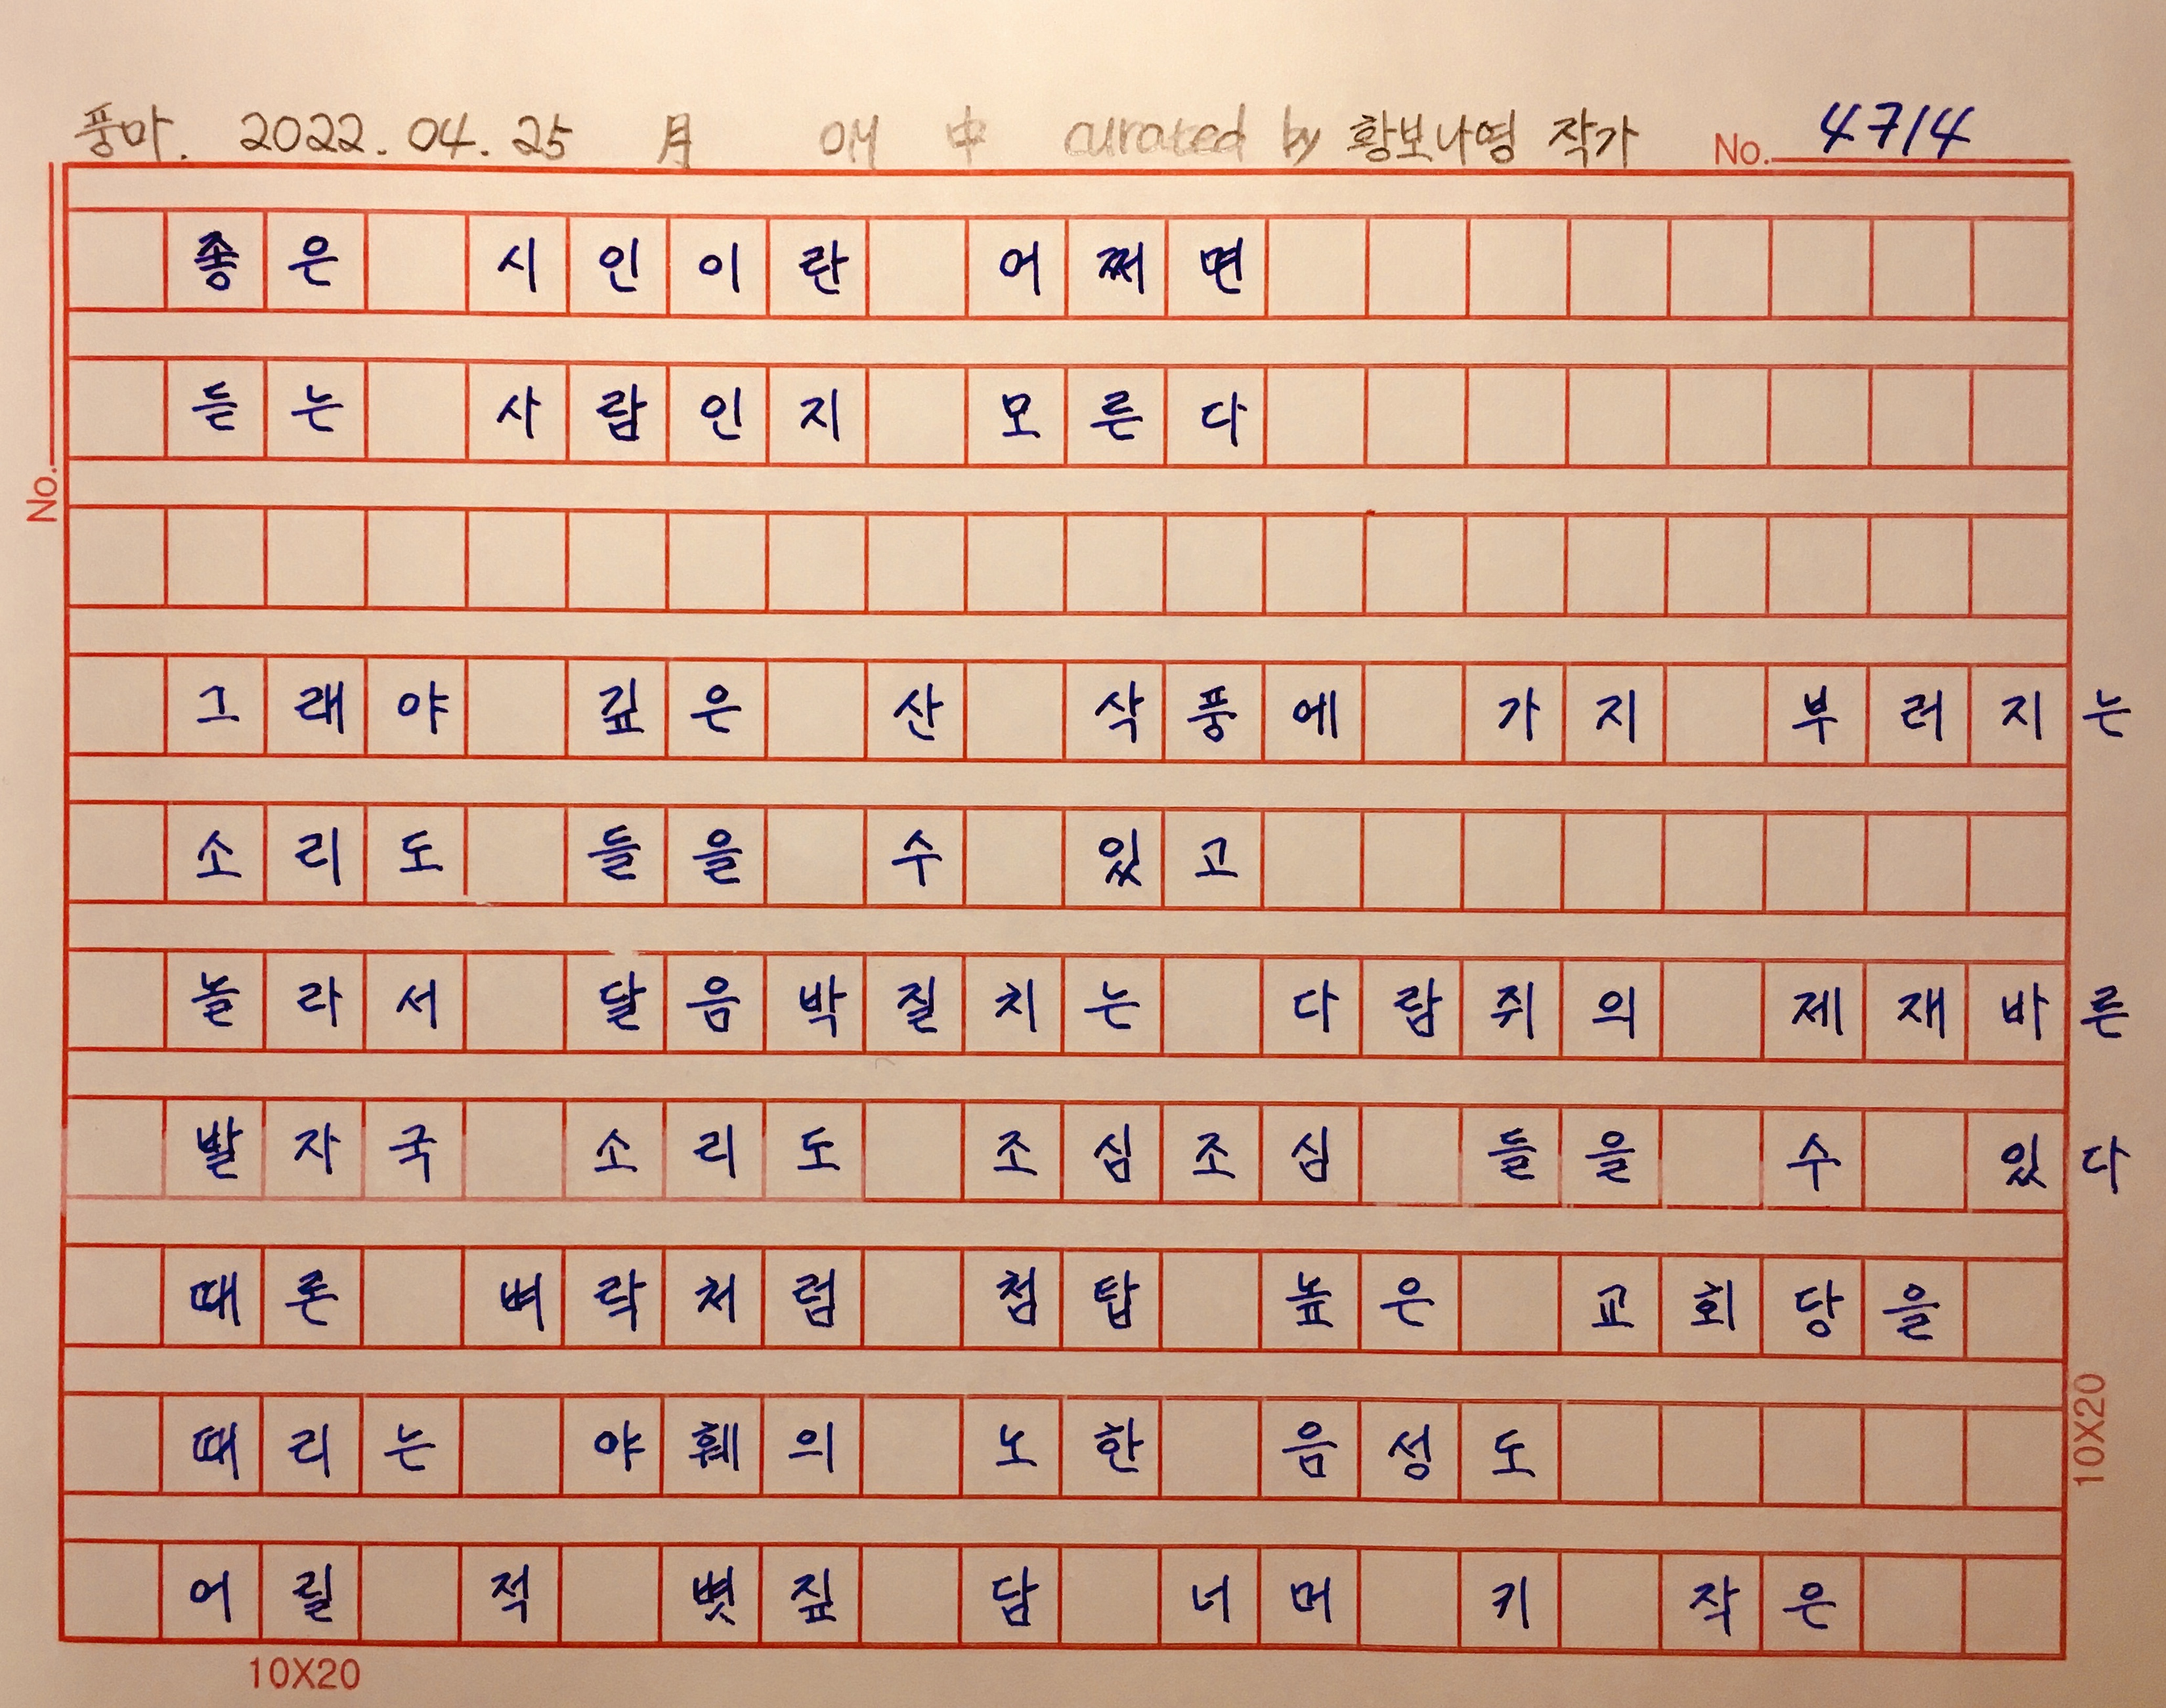 풍마. 2022. 04. 25 月 OH 中 curated by 황보나영 작가 No. 4714
좋은 시인이란 어쩌면
듣는 사람인지 모른다
No.
그래야 깊은 산 삭풍에 가지 부러지는
소리도 들을 수 있고
놀라서 달음박질치는 다람쥐의 제재바른
발자국 소리도 조심조심 들을 수 있다
때론 벼락처럼 첨탑 높은 교회당을
때리는 야훼의 노한 음성도
어릴 적 볏짚 담 너머 키 작은
10X20
10X20